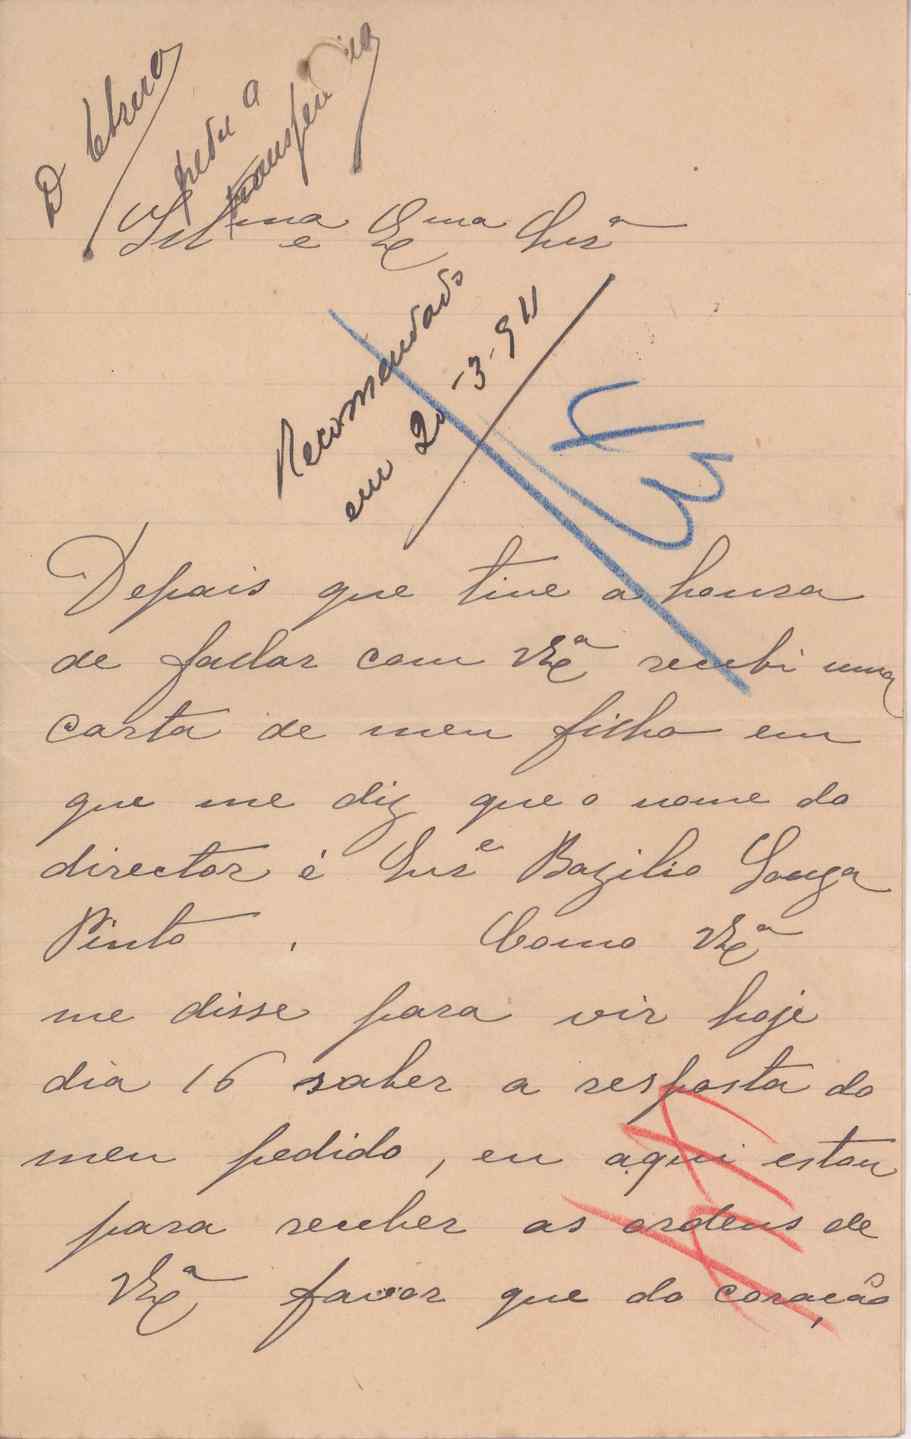 pedir a
transferencia
Illma e Exma Snrª
Recomendado
em 20-3-911
Depais que tive a honra
de fallar com VExª recebi uma
carta de meu filho em
que me diz que o nome do
director é Snrº Bazilio Souza
Pinto. Como VExª
me disse para vir hoje
dia 16 saber a resposta do
meu pedido, eu aqui estou
para receber as ordens de
VExª favor que do coração